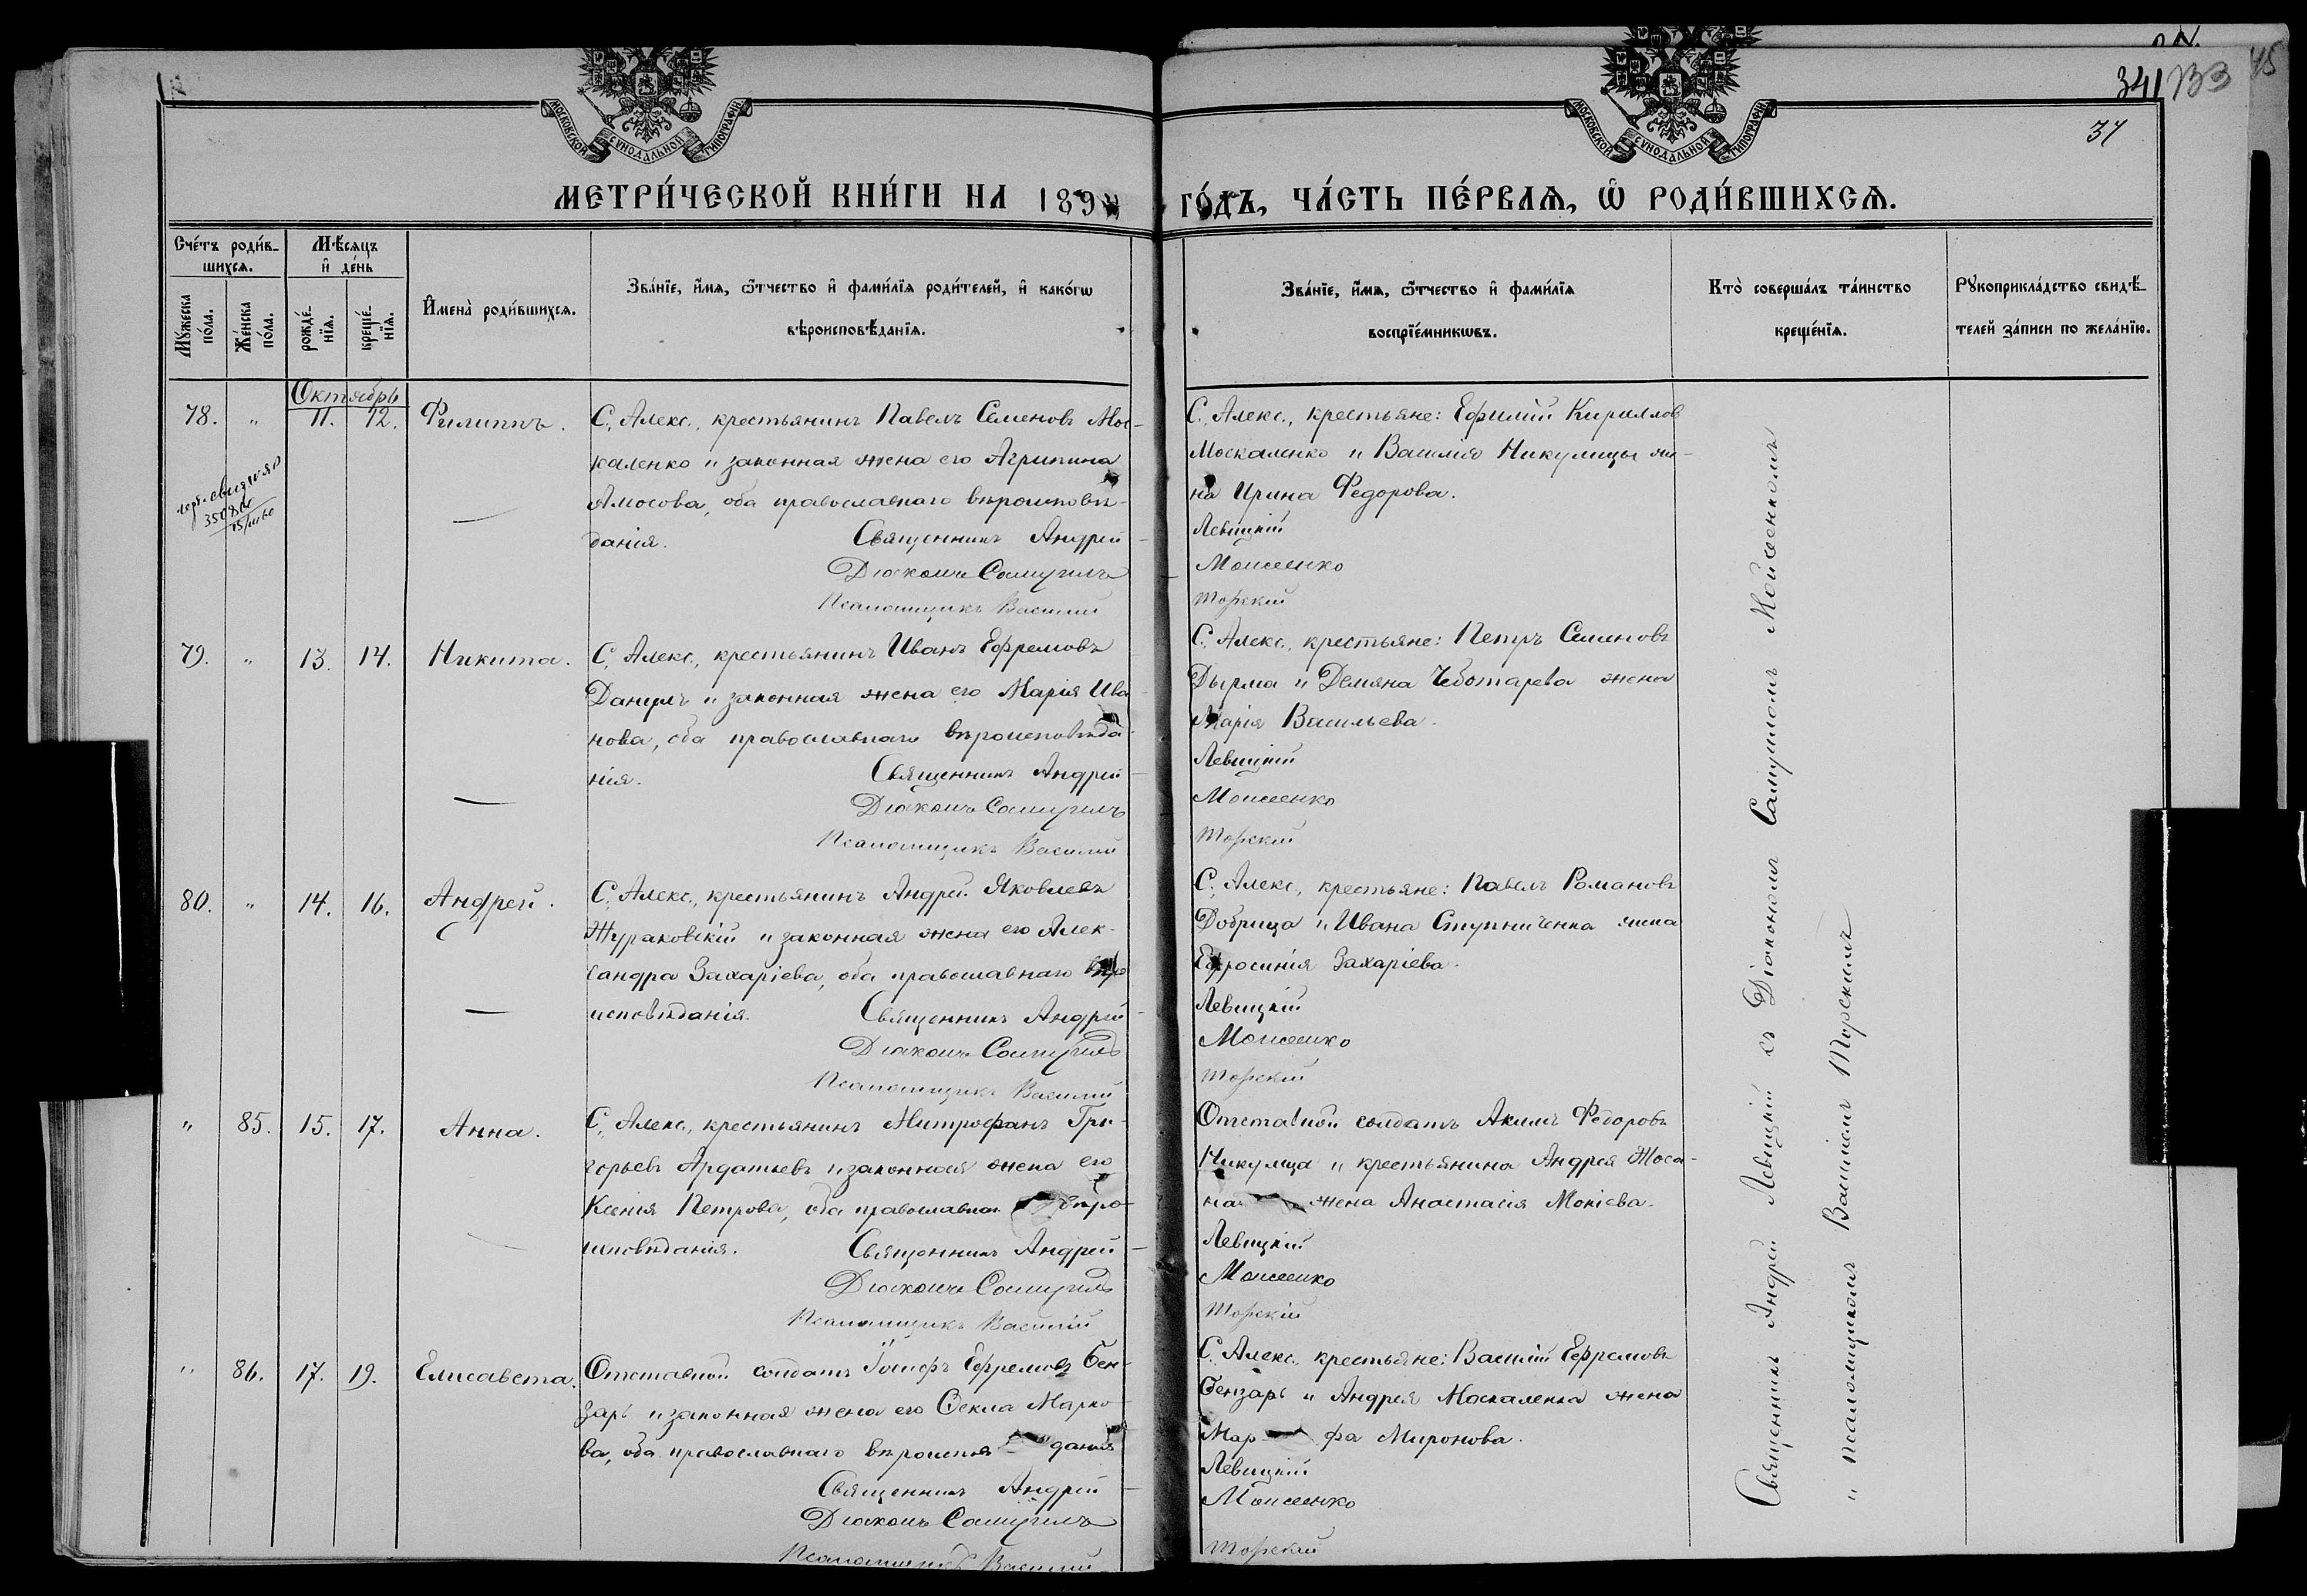 341
37
МОСКОВСКОЙ СѴНОДАЛЬНОЙ ТИПОГРАФІИ
МОСКОВСКОЙ СѴНОДАЛЬНОЙ ТИПОГРАФІИ
МЕТРИ́ЧЕСКОЙ КНИ́ГИ НА 189
ГО́ДЪ, ЧА́СТЬ ПЕ́РВАѦ, Ѡ РОДИ́ВШИХСѦ.
Сче́тъ роди́в-
шихсѧ.
Мꙋ́жеска по́ла.
Же́нска по́ла.
Мѣ́сѧцъ и де́нь
рожде́-нїѧ.
креще́-нїѧ.
Имена̀ роди́вшихсѧ.
Зва́нїе, и́мѧ, ѻ́тчество и фами́лїѧ роди́телей, и како́гѡ
вѣроисповѣ́данїѧ.
Зва́нїе, и́мѧ, ѻ́тчество и фами́лїѧ
воспрїе́мникѡвъ.
Кто̀ соверша́лъ та́инство
креще́нїѧ.
Рꙋкоприкла́дство свидѣ́-
телей за́писи по жела́нїю.
Октябрь
78. " 11. 12. Филиппъ.
С. Алекс., крестьянинъ Павелъ Семеновъ Мос-
каленко и законная жена его Агрипина
Амосова, оба православнаго вѣроисповѣ-
данія. Священникъ Андрей
Діаконъ Самуилъ
Псаломщикъ Василій
С. Алекс., крестьяне: Ефимій Кириллов
Москаленко и Василія Никулицы же-
на Ирина Федорова.
Левицкій
Моисеенко
Торскій
79. " 13. 14. Никита.
С. Алекс., крестьянинъ Иванъ Ефремовъ
и законная жена его Марія Ива
нова, оба православнаго вѣроисповѣда
нія. Священникъ Андрей
Діаконъ Самуилъ
Псаломщикъ Василій
С. Алекс., крестьяне: Петръ Семеновъ
Дырма и Демяна Чеботарева жена
Марія Васильева.
Левицкій
Моисеенко
Торскій
80. " 14. 16. Андрей.
С. Алекс., крестьянинъ Андрей Яковлевъ
Жураковскій и законная жена его Алек-
сандра Захаріева, оба православнаго вѣро
исповѣданія. Священникъ Андрей
Діаконъ Самуилъ
Псаломщикъ Василій
С. Алекс., крестьяне: Павелъ Романовъ
Добрица и Ивана Ступниченка жена
Ефросинія Захаріева.
Левицкій
Моисеенко
Торскій
" 85. 15. 17. Анна.
С. Алекс., крестьянинъ Митрофанъ Гри-
горьевъ Ардатьевъ и законная жена его
Ксенія Петрова, оба православнаго вѣро-
исповѣданія. Священникъ Андрей
Діаконъ Самуилъ
Псаломщикъ Василій
Отставной солдатъ Акимъ Федоровъ
Никулица и крестьянина Андрея
на жена Анастасія Мокіева.
Левицкій
Моисеенко
Торскій
" 86. 17. 19. Елисавета.
Отставной солдатъ Іосифъ Ефремовъ Бен-
зарь и законная жена его Ѳекла Марко-
ва, оба православнаго вѣроисповѣданія
Священникъ Андрей
Діаконъ Самуилъ
Псаломщикъ Василій
С. Алекс., крестьяне: Василій Ефремовъ
Бензарь и Андрея Москаленка жена
Марфа Миронова.
Левицкій
Моисеенко
Торскій
Священникъ Андрей Левицкій съ Діакономъ Самуиломъ Мойсеенкомъ
и псаломщикомъ Василіемъ Торскимъ